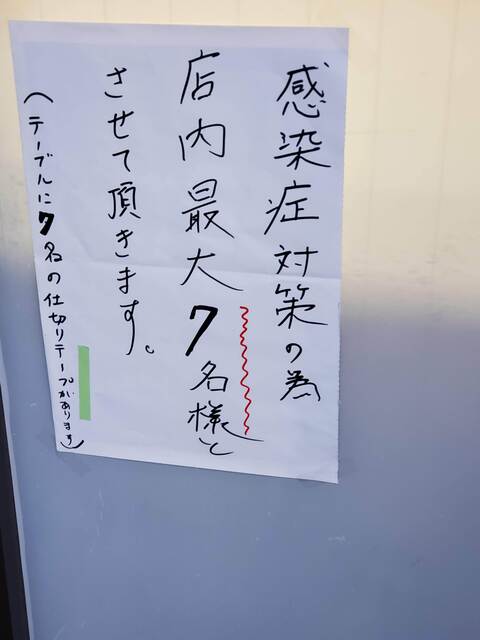 感染症対策の為
店内最大7名様と
させて頂きます。
(テーブルに7名の仕切りテープがあります)